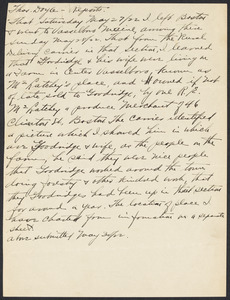 Thos. Doyle - reports.
That Saturday May 27/22 I left Boston
& went to Vassalboro Maine, arriving there
Sunday May 28/22. That from the Rural
Delivery Carrier in that section, I learned
that Goodridge and his wife were living on
a farm in Center Vassalboro, known as
place, and
to Goodridge, by one R.E.
a produce merchant of 46
Clinton St. Boston. The Carrier identified
a picture which I showed him in which
are Goodridge & wife, as the people on the
farm, he said they were nice people
that Goodridge worked around the town
doing forestry & other kindred work, that
the Goodridges had been up in that section
for around a year. The location of place I
have charted from information on a separate
sheet.
above submitted May 31/22.